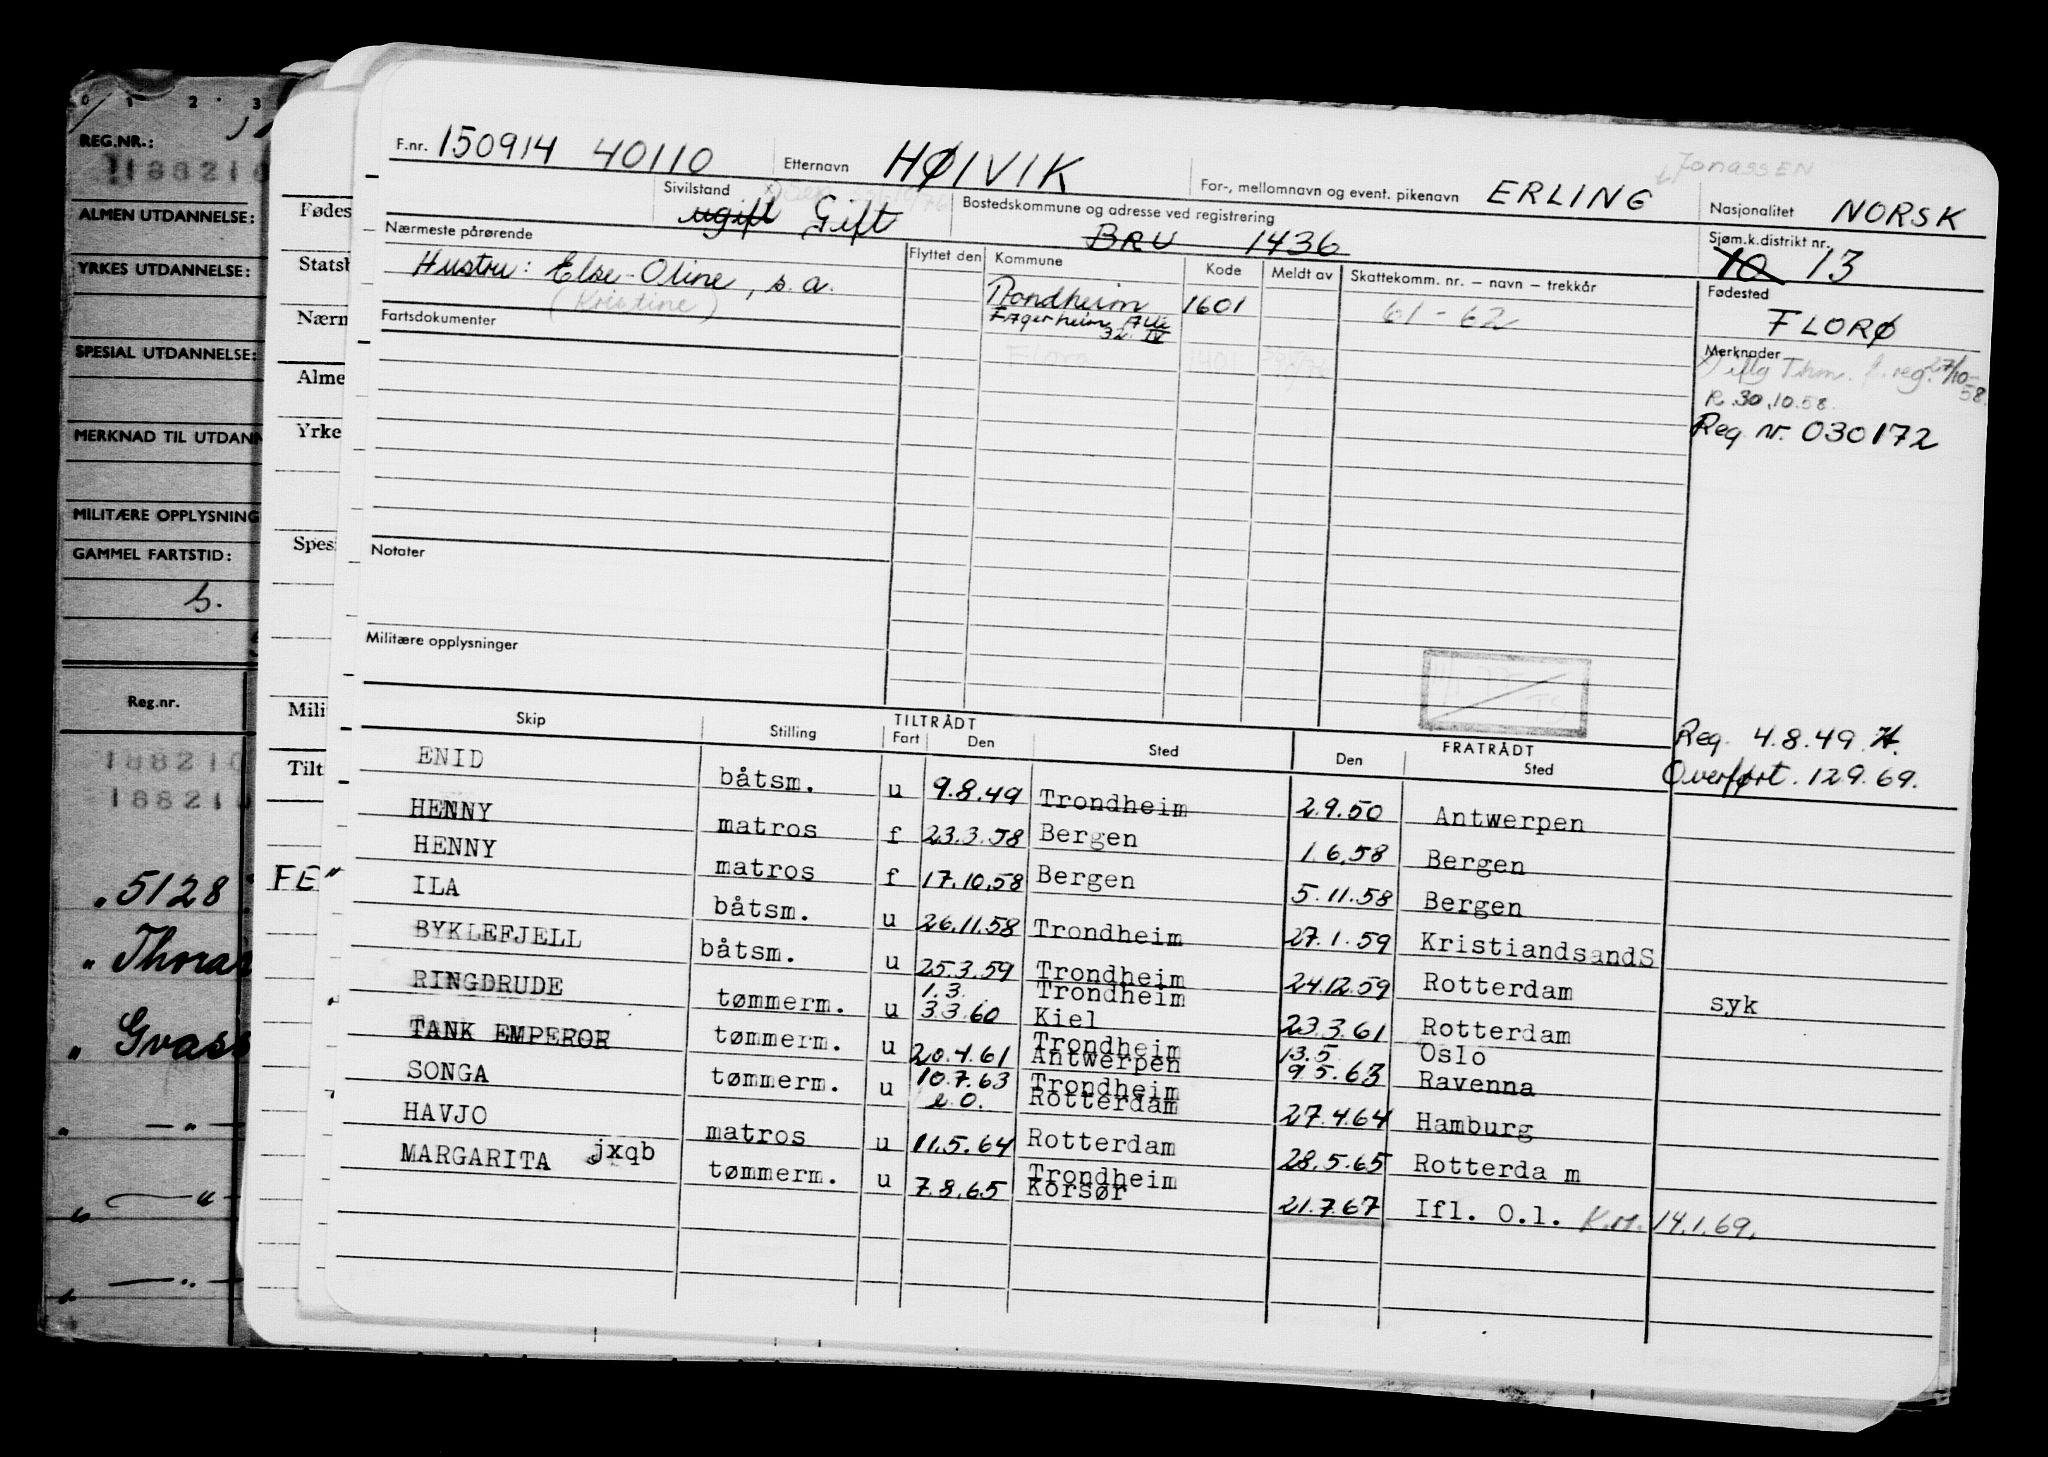 0 1 2 3
REG.NR.:
188210
ALMEN UTDANNELSE:
YRKES UTDANNELSE:
SPESIAL UTDANNELSE:
MERKNAD TIL UTDANN
MILITÆRE OPPLYSNING
GAMMEL FARTSTID:
Reg.nr.
188210
188210
"5128
"
"
" — " —
Fødes
Statsb
Nærm
Alme
Yrke
Spesi
Mili
Tilt
FE
F.nr. 150914 40110 Etternavn HØIVIK For-, mellomnavn og event. pikenavn ERLING Jonassen Nasjonalitet NORSK
Sivilstand ugift Gift Bostedskommune og adresse ved registrering BRU 1436 Sjøm.k.distrikt nr. 10 13
Nærmeste pårørende Flyttet den Kommune Kode Meldt av Skattekomm. nr. — navn — trekkår Fødested
Hustru: Else-Oline, s.a. Trondheim 1601 61-62 FLORØ
(Kristine) Fagerheim Alle
32. IV
Fartsdokumenter Flora 1401 Merknader
Thm. f. reg. 27/10-58.
R. 30.10.58.
Reg. nr. 030172
Notater
Militære opplysninger
Reg. 4.8.49
Overført. 12.9.69.
Skip Stilling TILTRÅDT Fart Den Sted FRATRÅDT Den Sted
ENID båtsm. u 9.8.49 Trondheim 2.9.50 Antwerpen
HENNY matros f 23.3.58 Bergen 1.6.58 Bergen
HENNY matros f 17.10.58 Bergen 5.11.58 Bergen
ILA båtsm. u 26.11.58 Trondheim 27.1.59 KristiandsandS
BYKLEFJELL båtsm. u 25.3.59 Trondheim 24.12.59 Rotterdam syk
RINGDRUDE tømmerm. u 1.3. Trondheim
3.3.60 Kiel 23.3.61 Rotterdam
TANK EMPEROR tømmerm. u 20.4.61 Trondheim Antwerpen 13.5 Oslo
9.5.63 Ravenna
SONGA tømmerm. u 10.7.63 Trondheim
e.o. Rotterdam 27.4.64 Hamburg
HAVJO matros u 11.5.64 Rotterdam 28.5.65 Rotterda m
MARGARITA jxqb tømmerm. u 7.8.65 Trondheim Korsør 21.7.67 Ifl. O.l. K.M. 14.1.69.